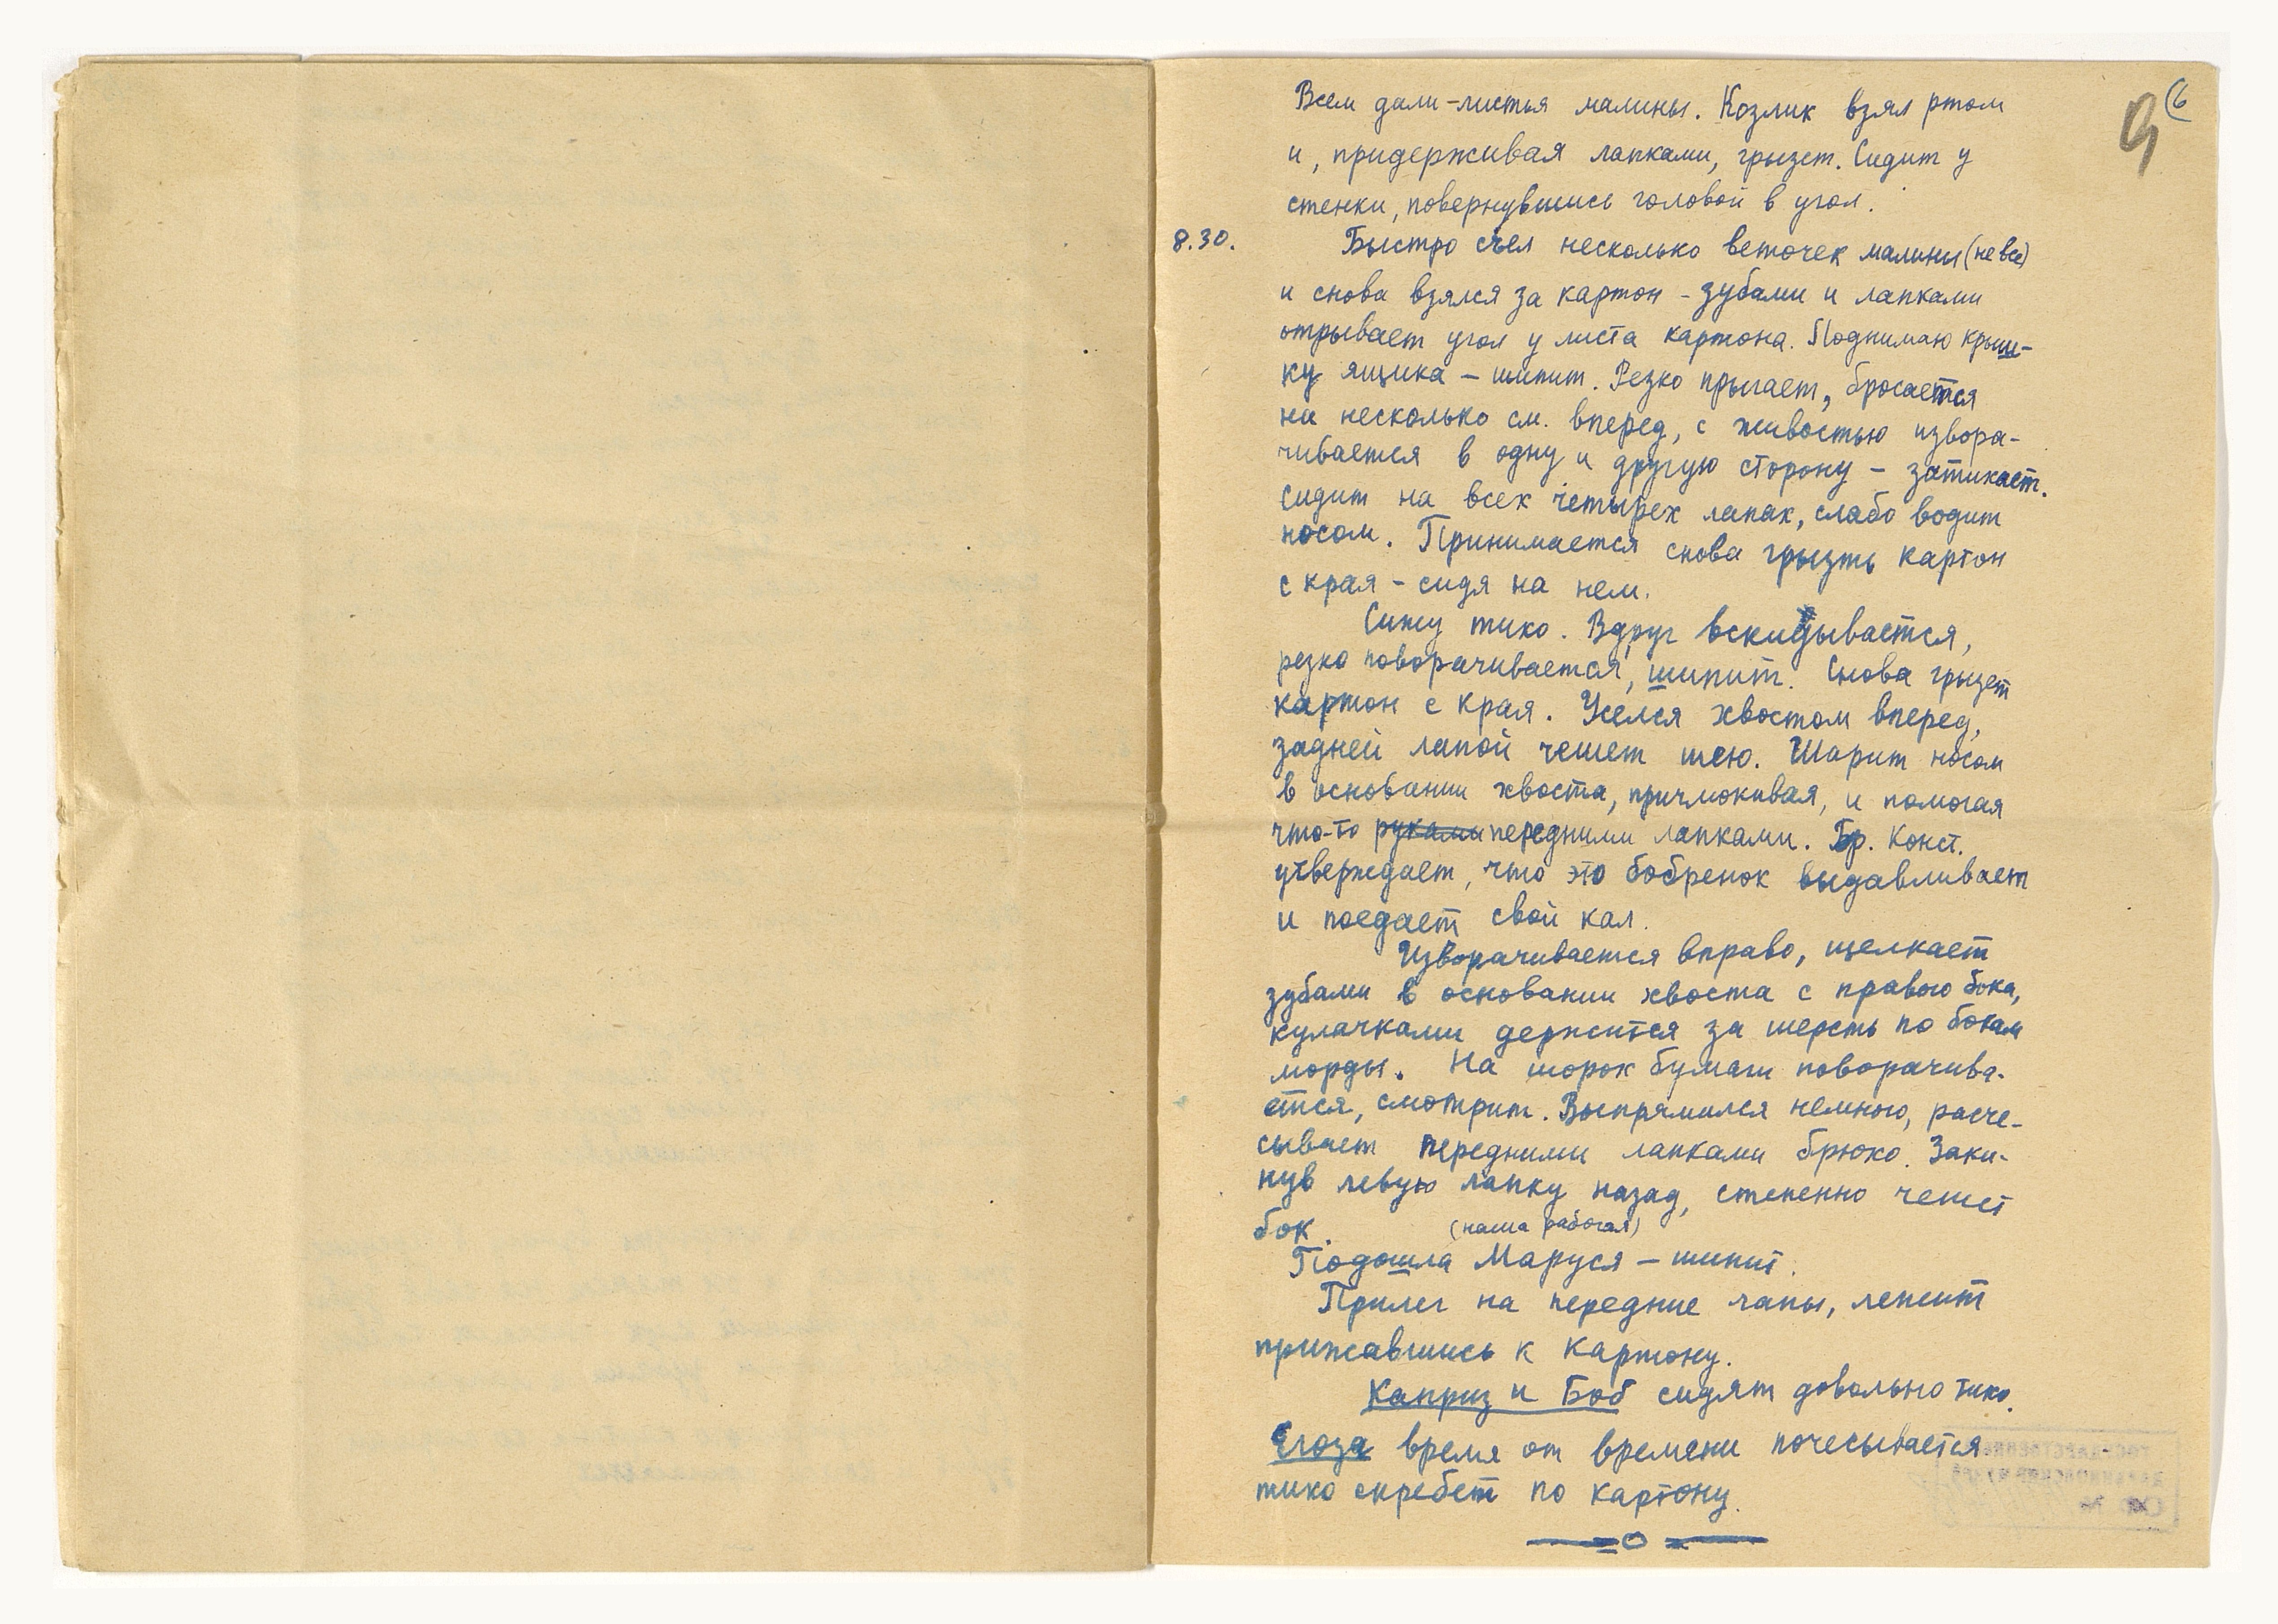 9 (6
Всем дали-листья малины. Козлик взял ртом
и, придерживая лапками, грызет. Сидит у
стенки, повернувшись головой в угол.
8.30. Быстро съел несколько веточек малины (не все)
и снова взялся за картон - зубами и лапками
отрывает угол у листа картона. Поднимаю крыш-
ку ящика - шипит. Резко прыгает, бросается
на несколько см. вперед, с живостью извора-
чивается в одну и другую сторону - затихает.
Сидит на всех четырех лапах, слабо водит
носом. Принимается снова грызть картон
с края - сидя на нем.
Сижу тихо. Вдруг вскидывается,
резко поворачивается, шипит. Снова грызет
картон с края. Уселся хвостом вперед,
задней лапой чешет шею. Шарит носом
в основании хвоста, причмокивая, и помогая
что-то руками передними лапками. Бр. Конст.
утверждает, что это бобренок выдавливает
и поедает свой кал.
Изворачивается вправо, щелкает
зубами в основании хвоста с правого бока,
кулачками держится за шерсть по бокам
морды. На шорох бумаги поворачива-
ется, смотрит. Выпрямился немного, расче-
сывает передними лапками брюхо. Заки-
нув левую лапку назад, степенно чешет
бок.
(наша рабочая)
Подошла Маруся - шипит.
Прилег на передние лапы, лежит
прижавшись к картону.
Каприз и Боб сидят довольно тихо.
Егоза время от времени почесывается
тихо скребет по картону.